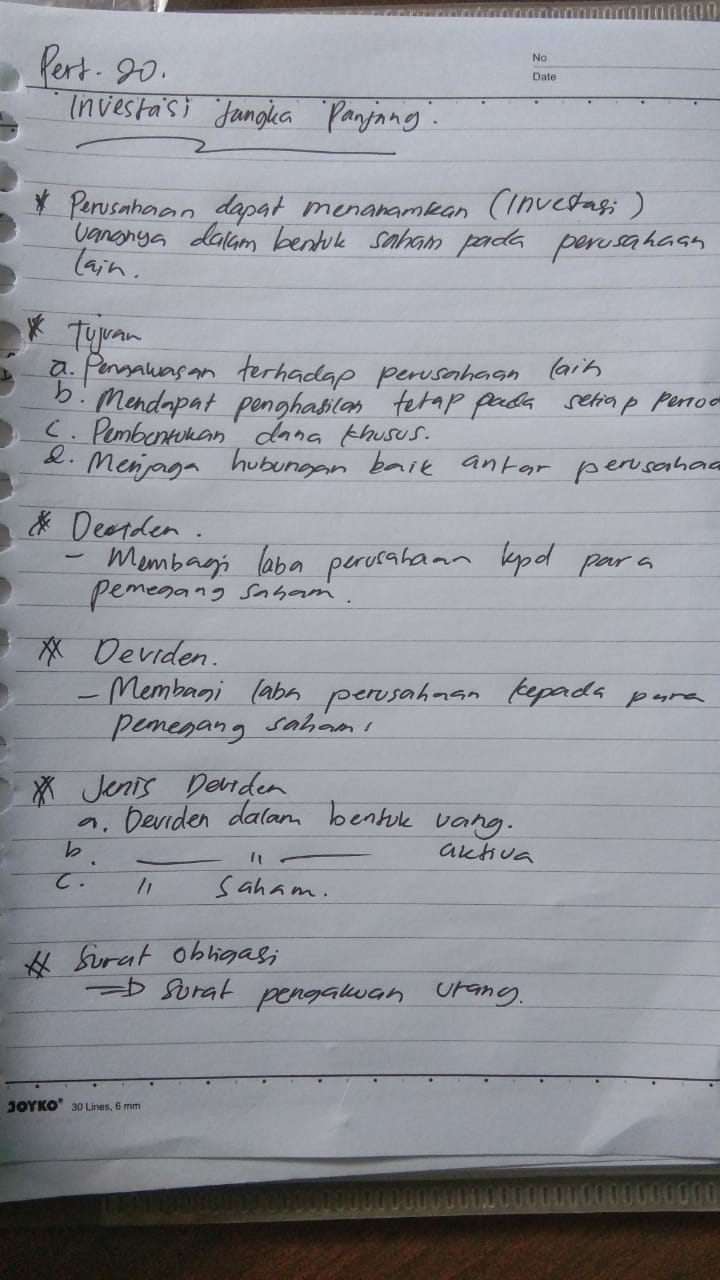 No
Date
Pert. 20.
Investasi Jangka Panjang.
* Perusahaan dapat menanamkan (Investasi)
uangnya dalam bentuk saham pada perusahaan
lain.
* Tujuan
a. Pengawasan terhadap perusahaan lain
b. Mendapat penghasilan tetap pada setiap Period
c. Pembentukan dana khusus.
d. Menjaga hubungan baik antar perusahaa
* Deviden.
- Membagi laba perusahaan kpd para
pemegang saham.
* Deviden.
- Membagi laba perusahaan kepada para
pemegang saham.
* Jenis Deviden
a. Deviden dalam bentuk uang.
b. —— " —— aktiva
c. " Saham.
# Surat Obligasi
=> Surat pengakuan utang.
JOYKO® 30 Lines, 6 mm